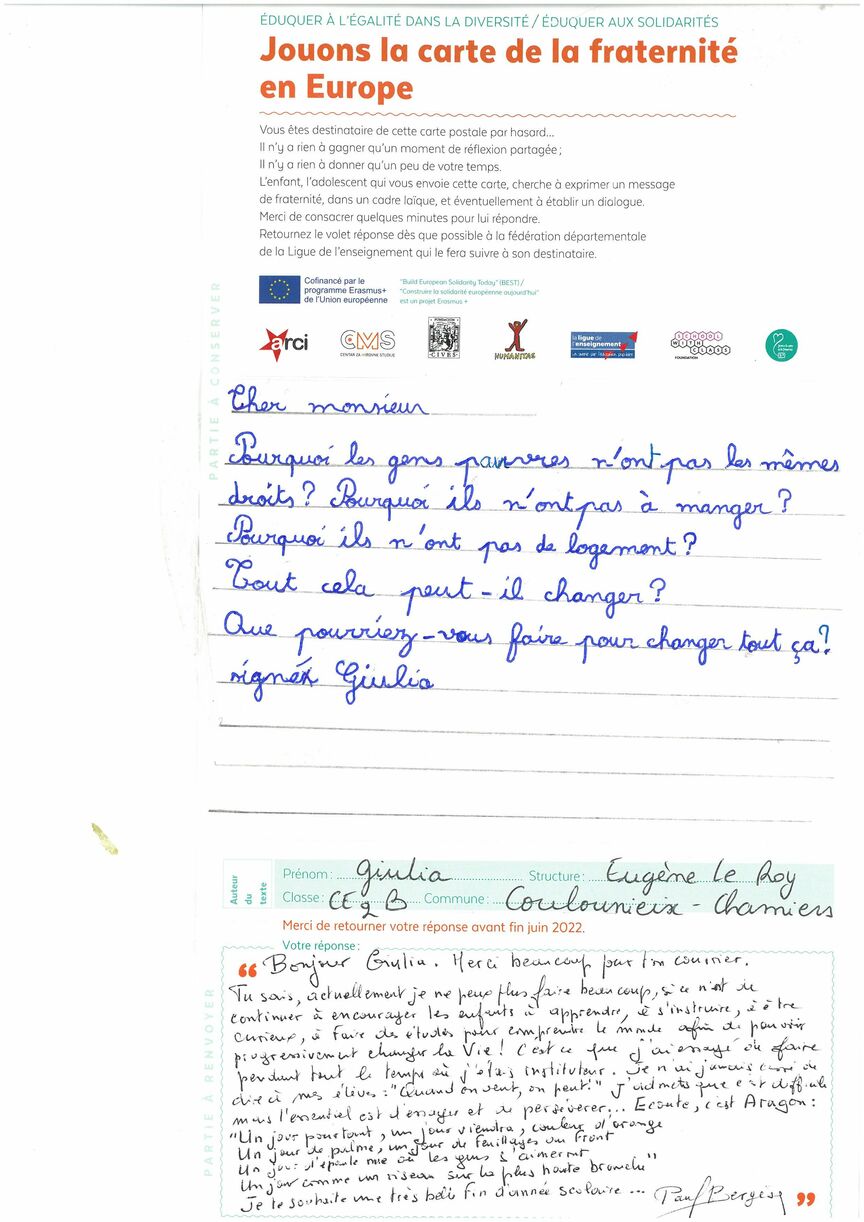 ÉDUQUER À L'ÉGALITÉ DANS LA DIVERSITÉ / ÉDUQUER AUX SOLIDARITÉS
Jouons la carte de la fraternité
en Europe
Vous êtes destinataire de cette carte postale par hasard...
Il n'y a rien à gagner qu'un moment de réflexion partagée ;
Il n'y a rien à donner qu'un peu de votre temps.
L'enfant, l'adolescent qui vous envoie cette carte, cherche à exprimer un message
de fraternité, dans un cadre laïque, et éventuellement à établir un dialogue.
Merci de consacrer quelques minutes pour lui répondre.
Retournez le volet réponse dès que possible à la fédération départementale
de la Ligue de l'enseignement qui le fera suivre à son destinataire.
Cofinancé par le
programme Erasmus+
de l'Union européenne
"Build European Solidarity Today" (BEST) /
"Construire la solidarité européenne aujourd'hui"
est un projet Erasmus +
arci
CMS
CENTAR ZA MIROVNE STUDIJE
FUNDACIÓN
CIVES
HUMANITAS
la ligue de
l'enseignement
un avenir par l'éducation populaire
SCHOOL
WITH
CLASS
FOUNDATION
PARTIE À CONSERVER
Cher monsieur
Pourquoi les gens pauvres n'ont pas les mêmes
droits? Pourquoi ils n'ont pas à manger?
Pourquoi ils n'ont pas de logement?
Tout cela peut-il changer?
Que pourriez-vous faire pour changer tout ça?
signé Giulia
Auteur
du
texte
Prénom : Giulia Structure : Eugène Le Roy
Classe : CE2 B Commune : Coulounieix - Chamiers
Merci de retourner votre réponse avant fin juin 2022.
Votre réponse :
PARTIE À RENVOYER
“ Bonjour Giulia. Merci beaucoup pour ton courrier.
Tu sais, actuellement je ne peux plus faire beaucoup, si ce n'est de
continuer à encourager les enfants à apprendre, à s'instruire, à être
curieux, à faire des études pour comprendre le monde afin de pouvoir
progressivement changer la Vie! C'est ce que j'ai essayé de faire
pendant tout le temps où j'étais instituteur. Je n'ai jamais cessé de
dire à mes élèves : "Quand on veut, on peut!" J'admets que c'est difficile
mais l'essentiel est d'essayer et de persévérer... Ecoute, c'est Aragon :
"Un jour pourtant, un jour viendra, couleur d'orange
Un jour de palme, un jour de feuillages au front
Un jour d'épaule nue où les gens s'aimeront
Un jour comme un oiseau sur la plus haute branche"
Je te souhaite une très belle fin d'année scolaire ... Paul ”